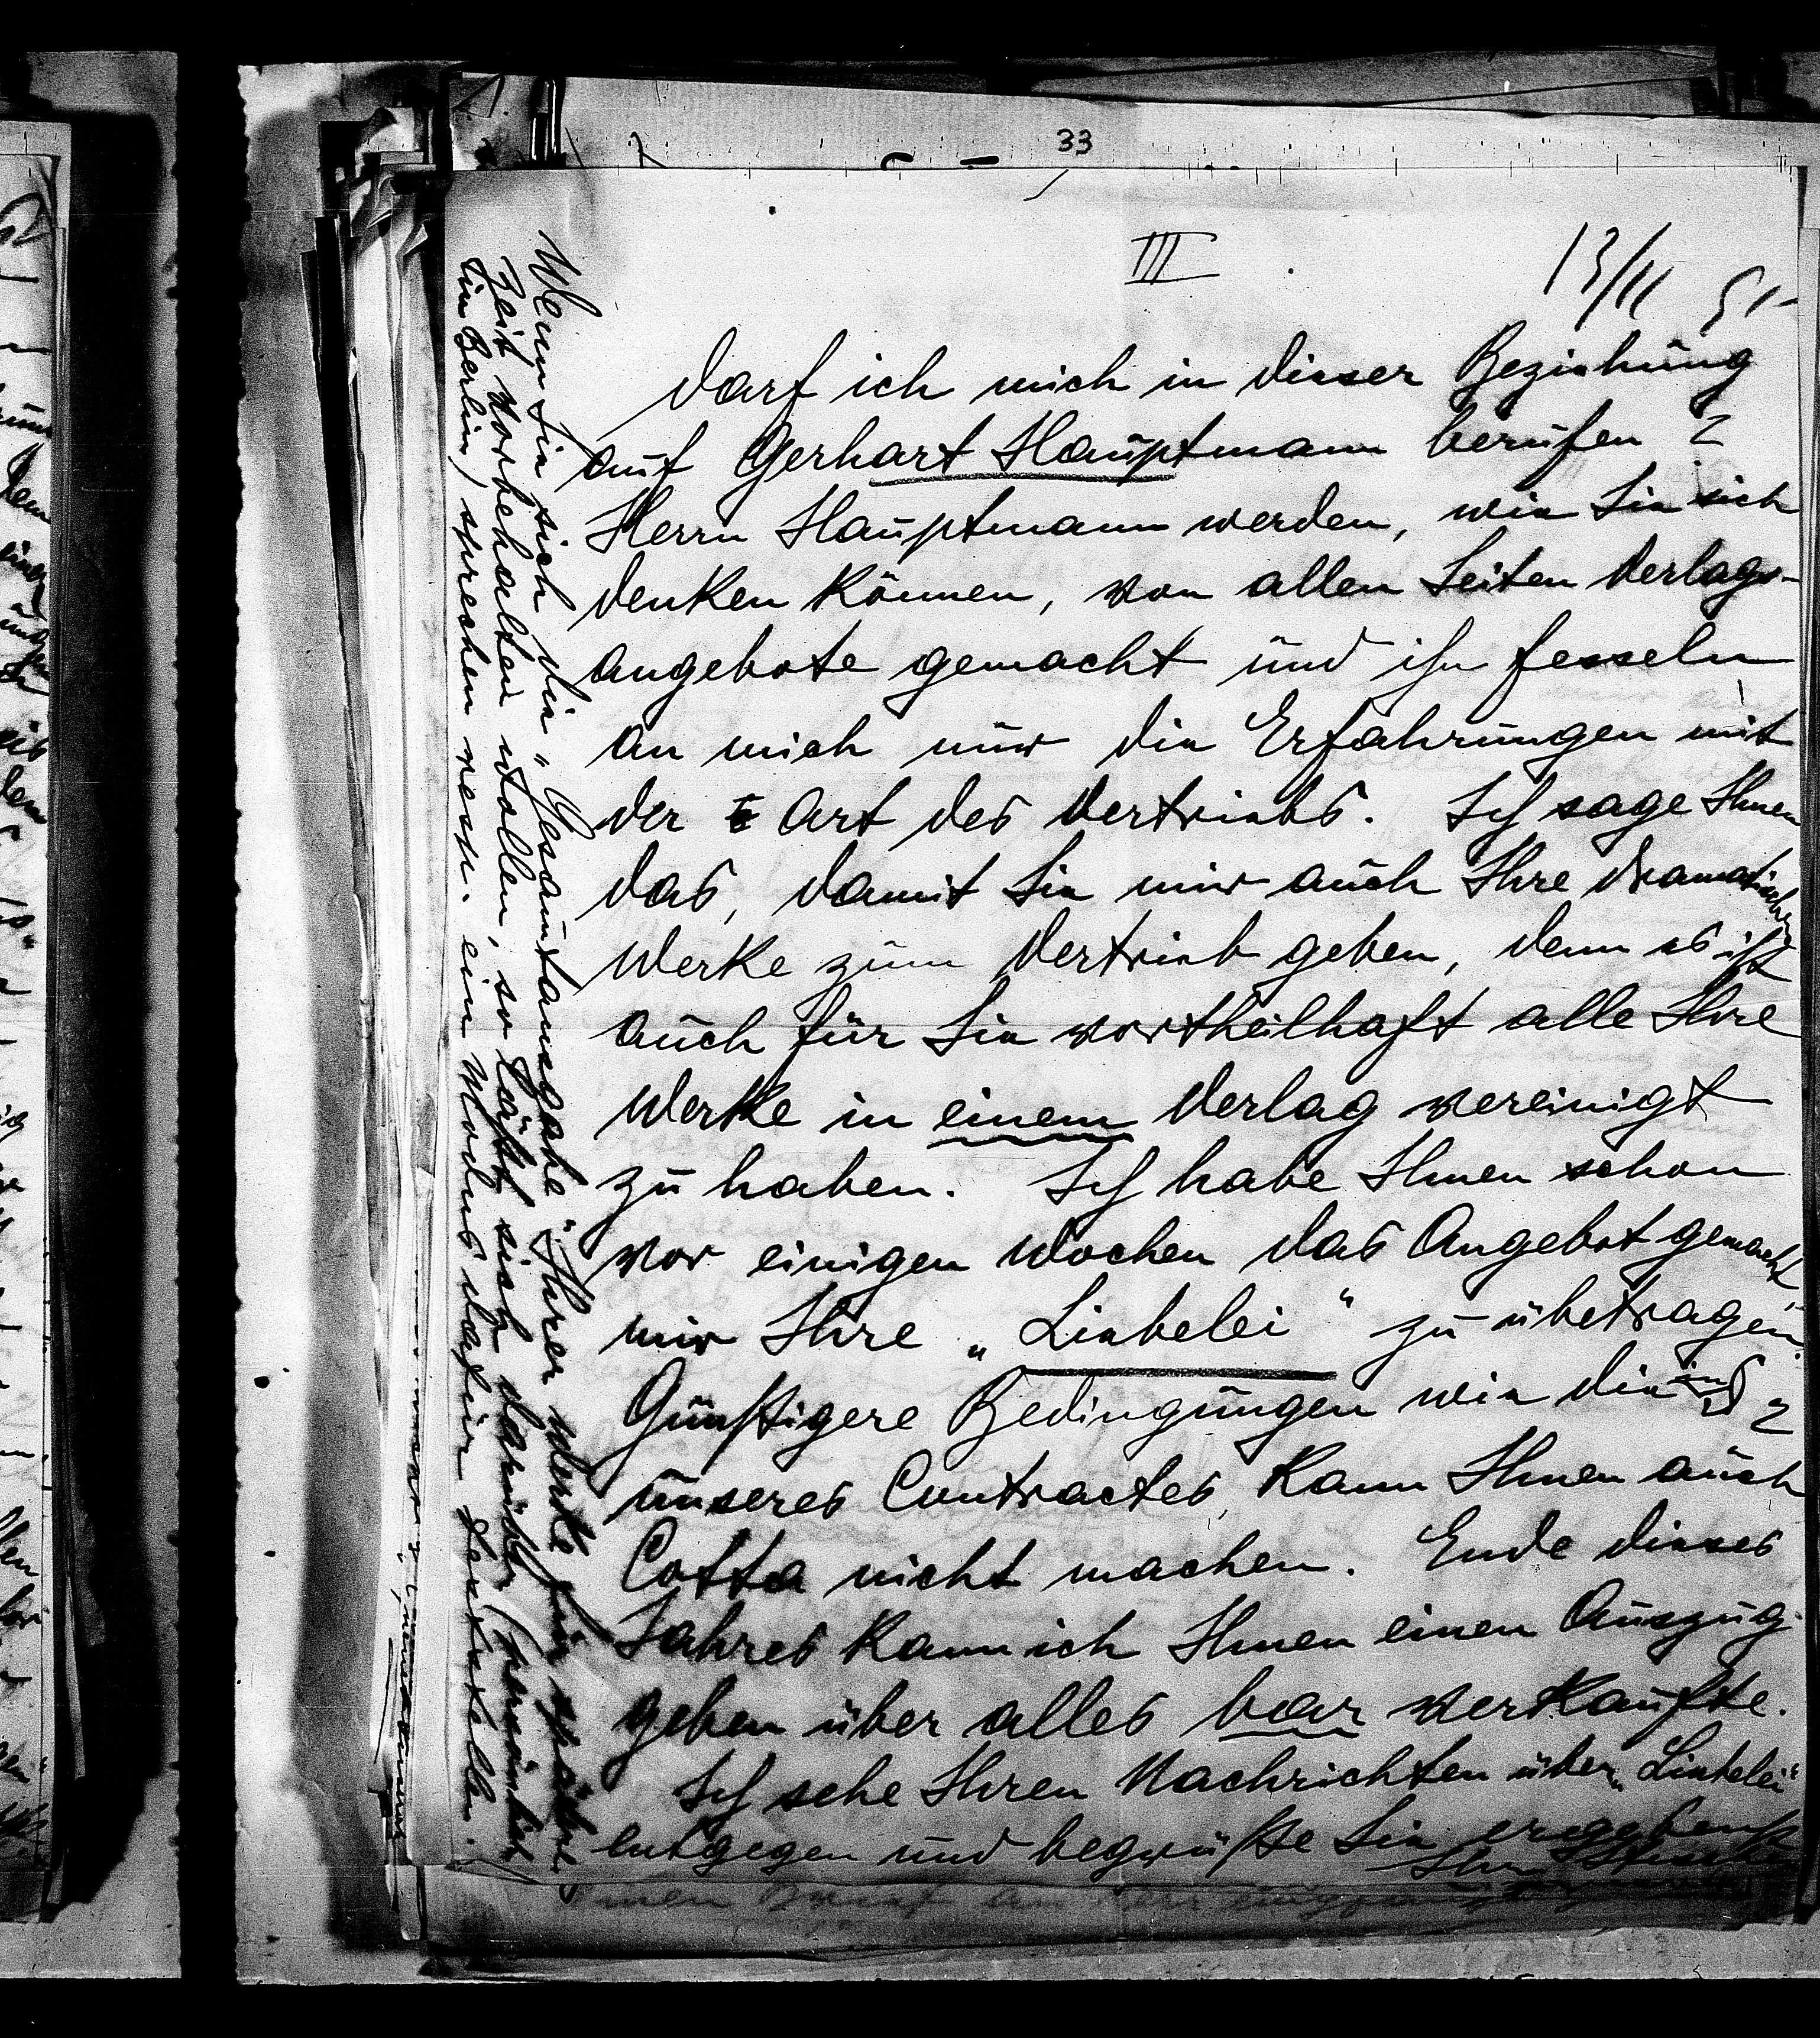 33
III
13/11 95
Darf ich mich in dieser Beziehung
auf Gerhart Hauptmann berufen?
Herrn Hauptmann werden, wie Sie sich
denken können, von allen Seiten Verlags-
angebote gemacht und ihn fesseln
an mich nur die Erfahrungen mit
der Art des Vertriebs. Ich sage Ihnen
das, damit Sie mir auch Ihre dramatischen
Werke zum Vertrieb geben, denn es ist
auch für Sie vortheilhaft alle Ihre
Werke in einem Verlag vereinigt
zu haben. Ich habe Ihnen schon
vor einigen Wochen das Angebot gemacht
mir Ihre „Liebelei“ zu übetragen.
Günstigere Bedingungen wie die in § 2
unseres Contractes kann Ihnen auch
Cotta nicht machen. Ende dieses
Jahres kann ich Ihnen einen Auszug
geben über alles bar verkaufte.
Ich sehe Ihren Nachrichten über „Liebelei“
entgegen und begrüße Sie ergebenst
Ihr
Wenn Sie sich die „Gesamtausgabe“ Ihrer Werke für spätere
Zeit vorbehalten wollen, so läßt sich darüber (persönlich
in Berlin) sprechen resp. ein Modus dafür feststellen.